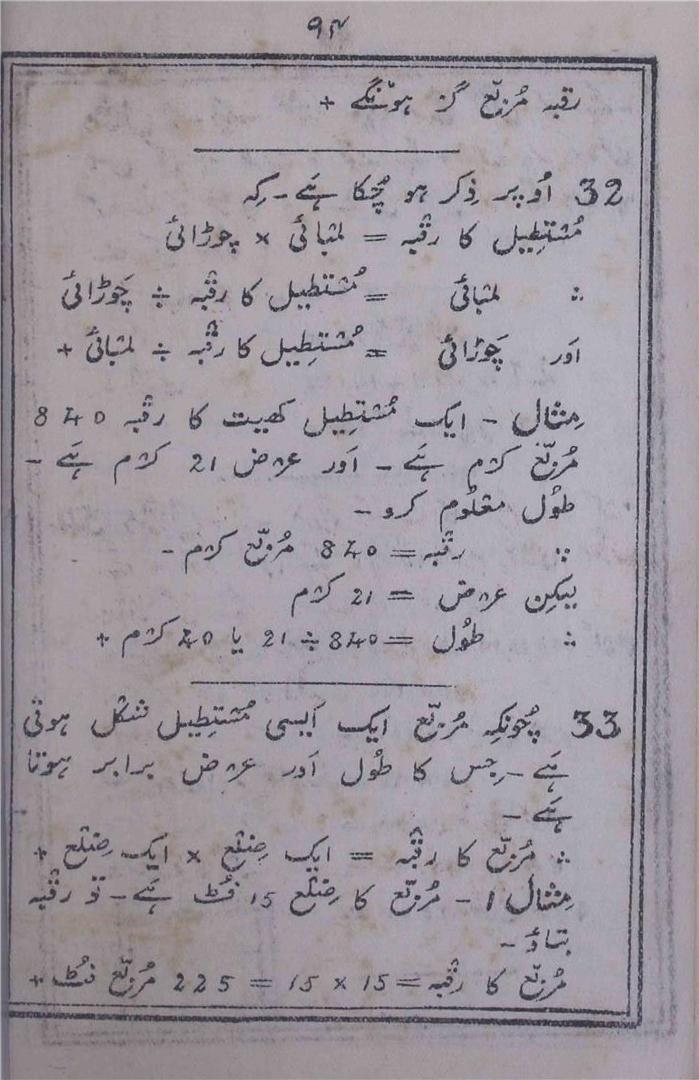 ۹۴
رقبہ مُربّع گز ہونگے +
32 اُوپر ذِکر ہو چُکا ہَے ـ کِہ
مُستطِیل کا رقبہ = لمبائی × چوڑائی
∴ لمبائی = مُستطِیل کا رقبہ ÷ چَوڑائی
اَور چَوڑائی = مُستطِیل کا رقبہ ÷ لمبائی +
مِثال ـ ایک مُستطِیل کھیت کا رقبہ 840
مُربّع کرم ہَے ـ اَور عرض 21 کرم ہَے ـ
طُول معلُوم کرو ـ
∵ رقبہ = 840 مُربّع کرم ـ
لیکِن عرض = 21 کرم
∴ طُول = 840 ÷ 21 یا 40 کرم +
33 چُونکِہ مُربّع ایک اَیسی مُستطِیل شکل ہوتی
ہَے ـ جِس کا طُول اَور عرض برابر ہوتا
ہَے ـ
∴ مُربّع کا رقبہ = ایک ضِلع × ایک ضِلع +
مِثال 1 ـ مُربّع کا ضِلع 15 فُٹ ہَے ـ تو رقبہ
بتاؤ ـ
مُربّع کا رقبہ = 15 × 15 = 225 مُربّع فُٹ +